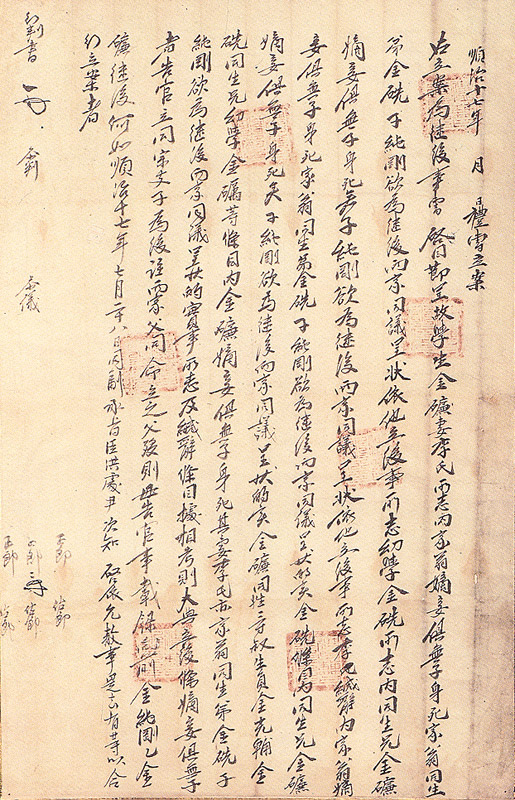 順治十七年 月 日禮曹立案
右立案爲繼後事曹 啓目節呈故學生金礦妻李氏所志內家翁嫡妾俱無子身死家翁同生
弟金硄子純剛欲爲繼後兩家同議呈狀依他立後事所志幼學金硄所志內同生兄金礦
嫡妾俱無子身死矣子純剛欲爲繼後兩家同議呈狀依他立後事所志李氏緘辭內家翁嫡
妾俱無子身死家翁同生弟金硄子純剛欲爲繼後兩家同議呈狀的實金硄條目內同生兄金礦
嫡妾俱無子身死矣子純剛欲爲繼後兩家同議呈狀的實金礦同姓三寸叔生員金克金
硄同生兄幼學金礪等條目內金礦嫡妾俱無子身死其妻李氏亦家翁同生弟金硄子
純剛欲爲繼後兩家同議呈狀的實事所志及緘辭條目據相考則大典立後條嫡妾俱無子
者告官立同宗支子爲後註兩家父同命立之父歿則母告官事載錄爲前金純剛乙金
礦繼後何如順治十七年七月二十八日同副承旨臣洪處尹次知 啓依允敎事是去有等以合
行立案者
判書 參判 參議 正郞 佐郞
正郞 佐郞
正郞 佐郞